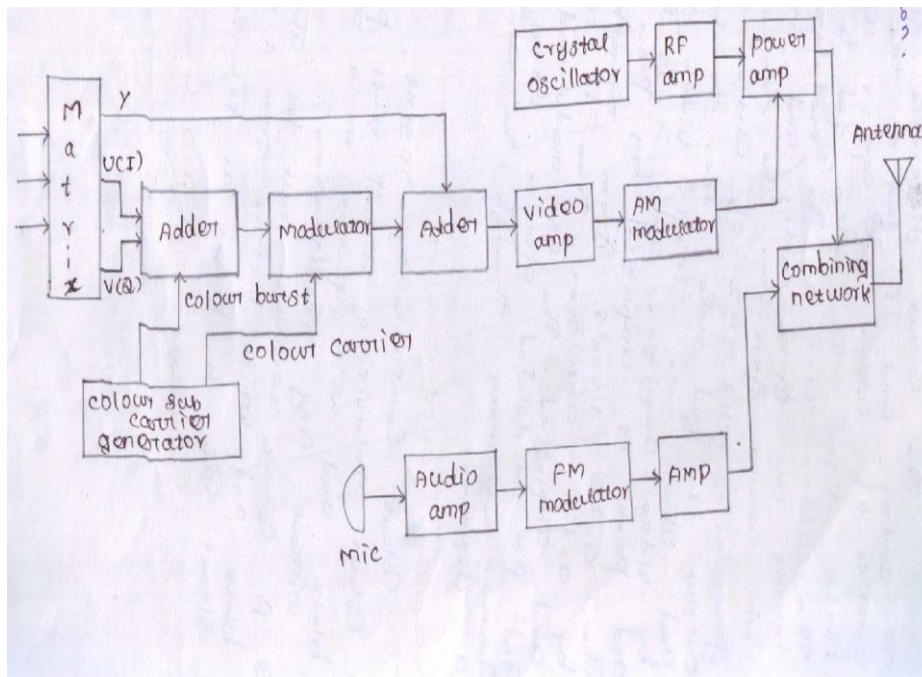 crystal
oscillator
RF
amp
power
amp
Antenna
M
a
t
r
i
x
Y
U(I)
V(Q)
Adder
Modulator
Adder
video
amp
AM
modulator
combining
network
colour burst
colour carrier
colour sub
carrier
generator
mic
Audio
amp
FM
modulator
AMP